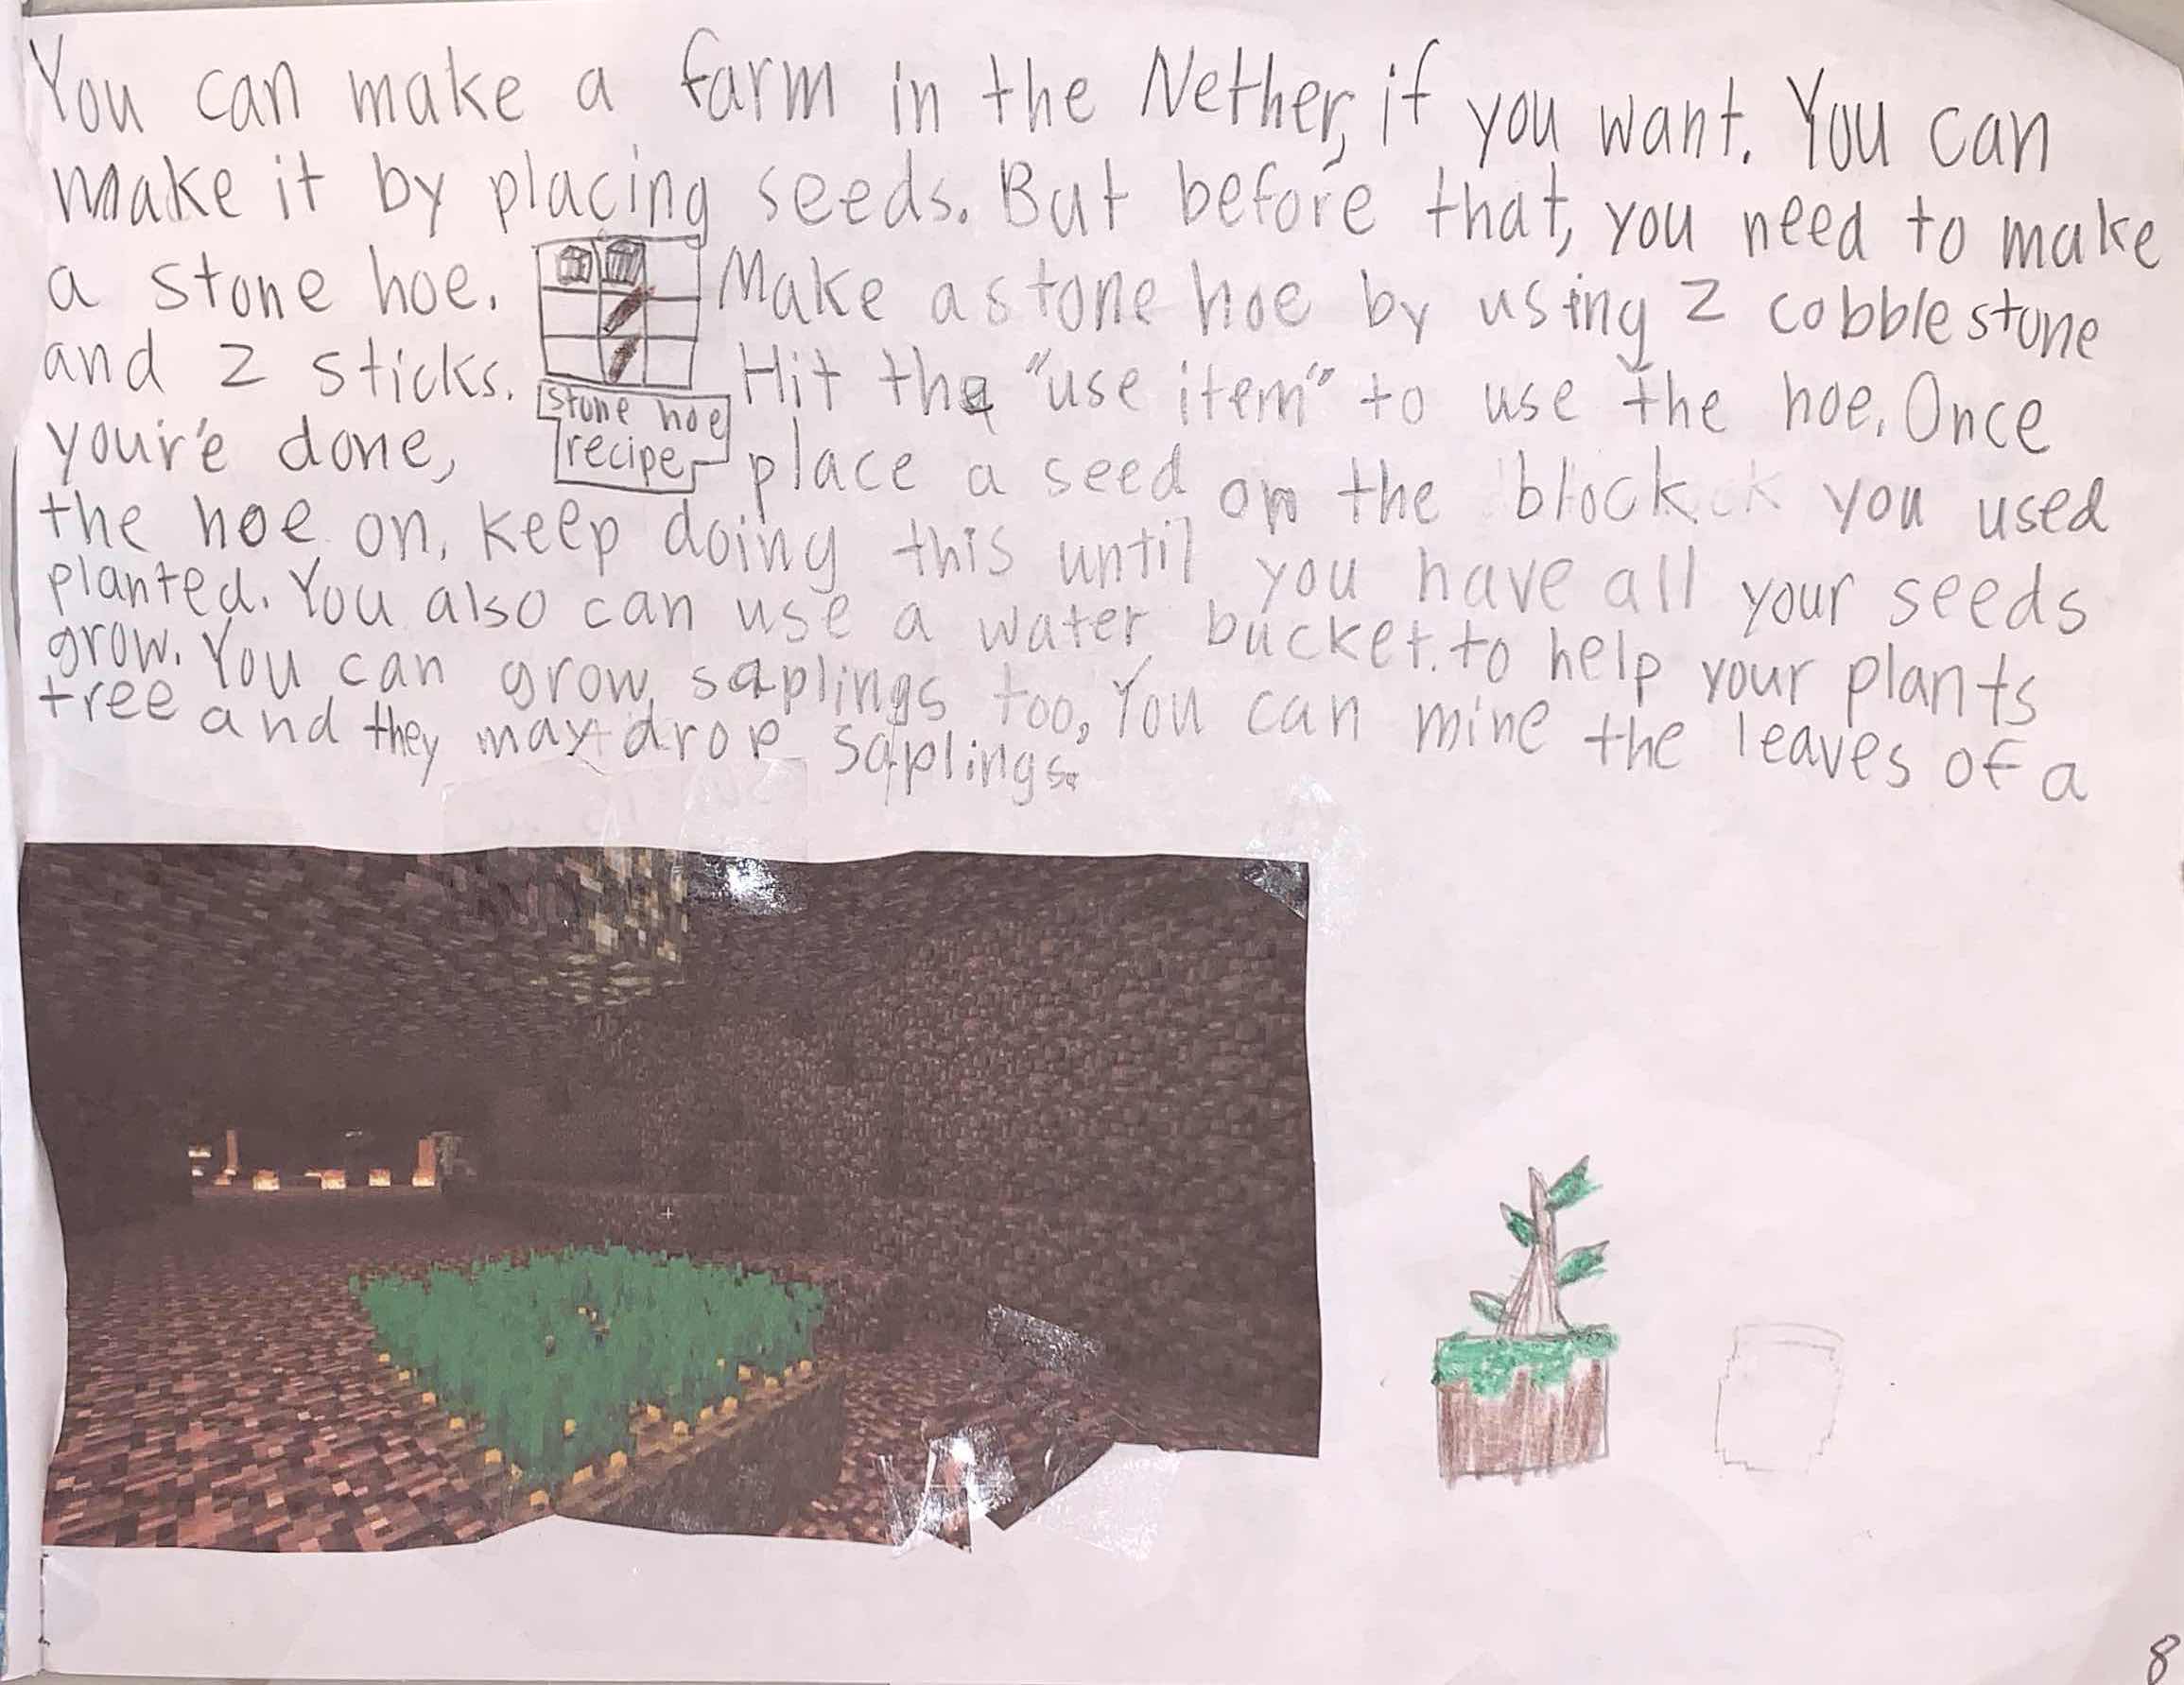 You can make a farm in the Nether, if you want. You can
make it by placing seeds. But before that, you need to make
a stone hoe. Make a stone hoe by using 2 cobblestone
and 2 sticks. Hit the "use item" to use the hoe. Once
stone hoe
recipe
your'e done, place a seed on the block you used
the hoe on. keep doing this until you have all your seeds
planted. You also can use a water bucket. to help your plants
grow. You can grow saplings too. You can mine the leaves of a
tree and they may drop saplings.
8